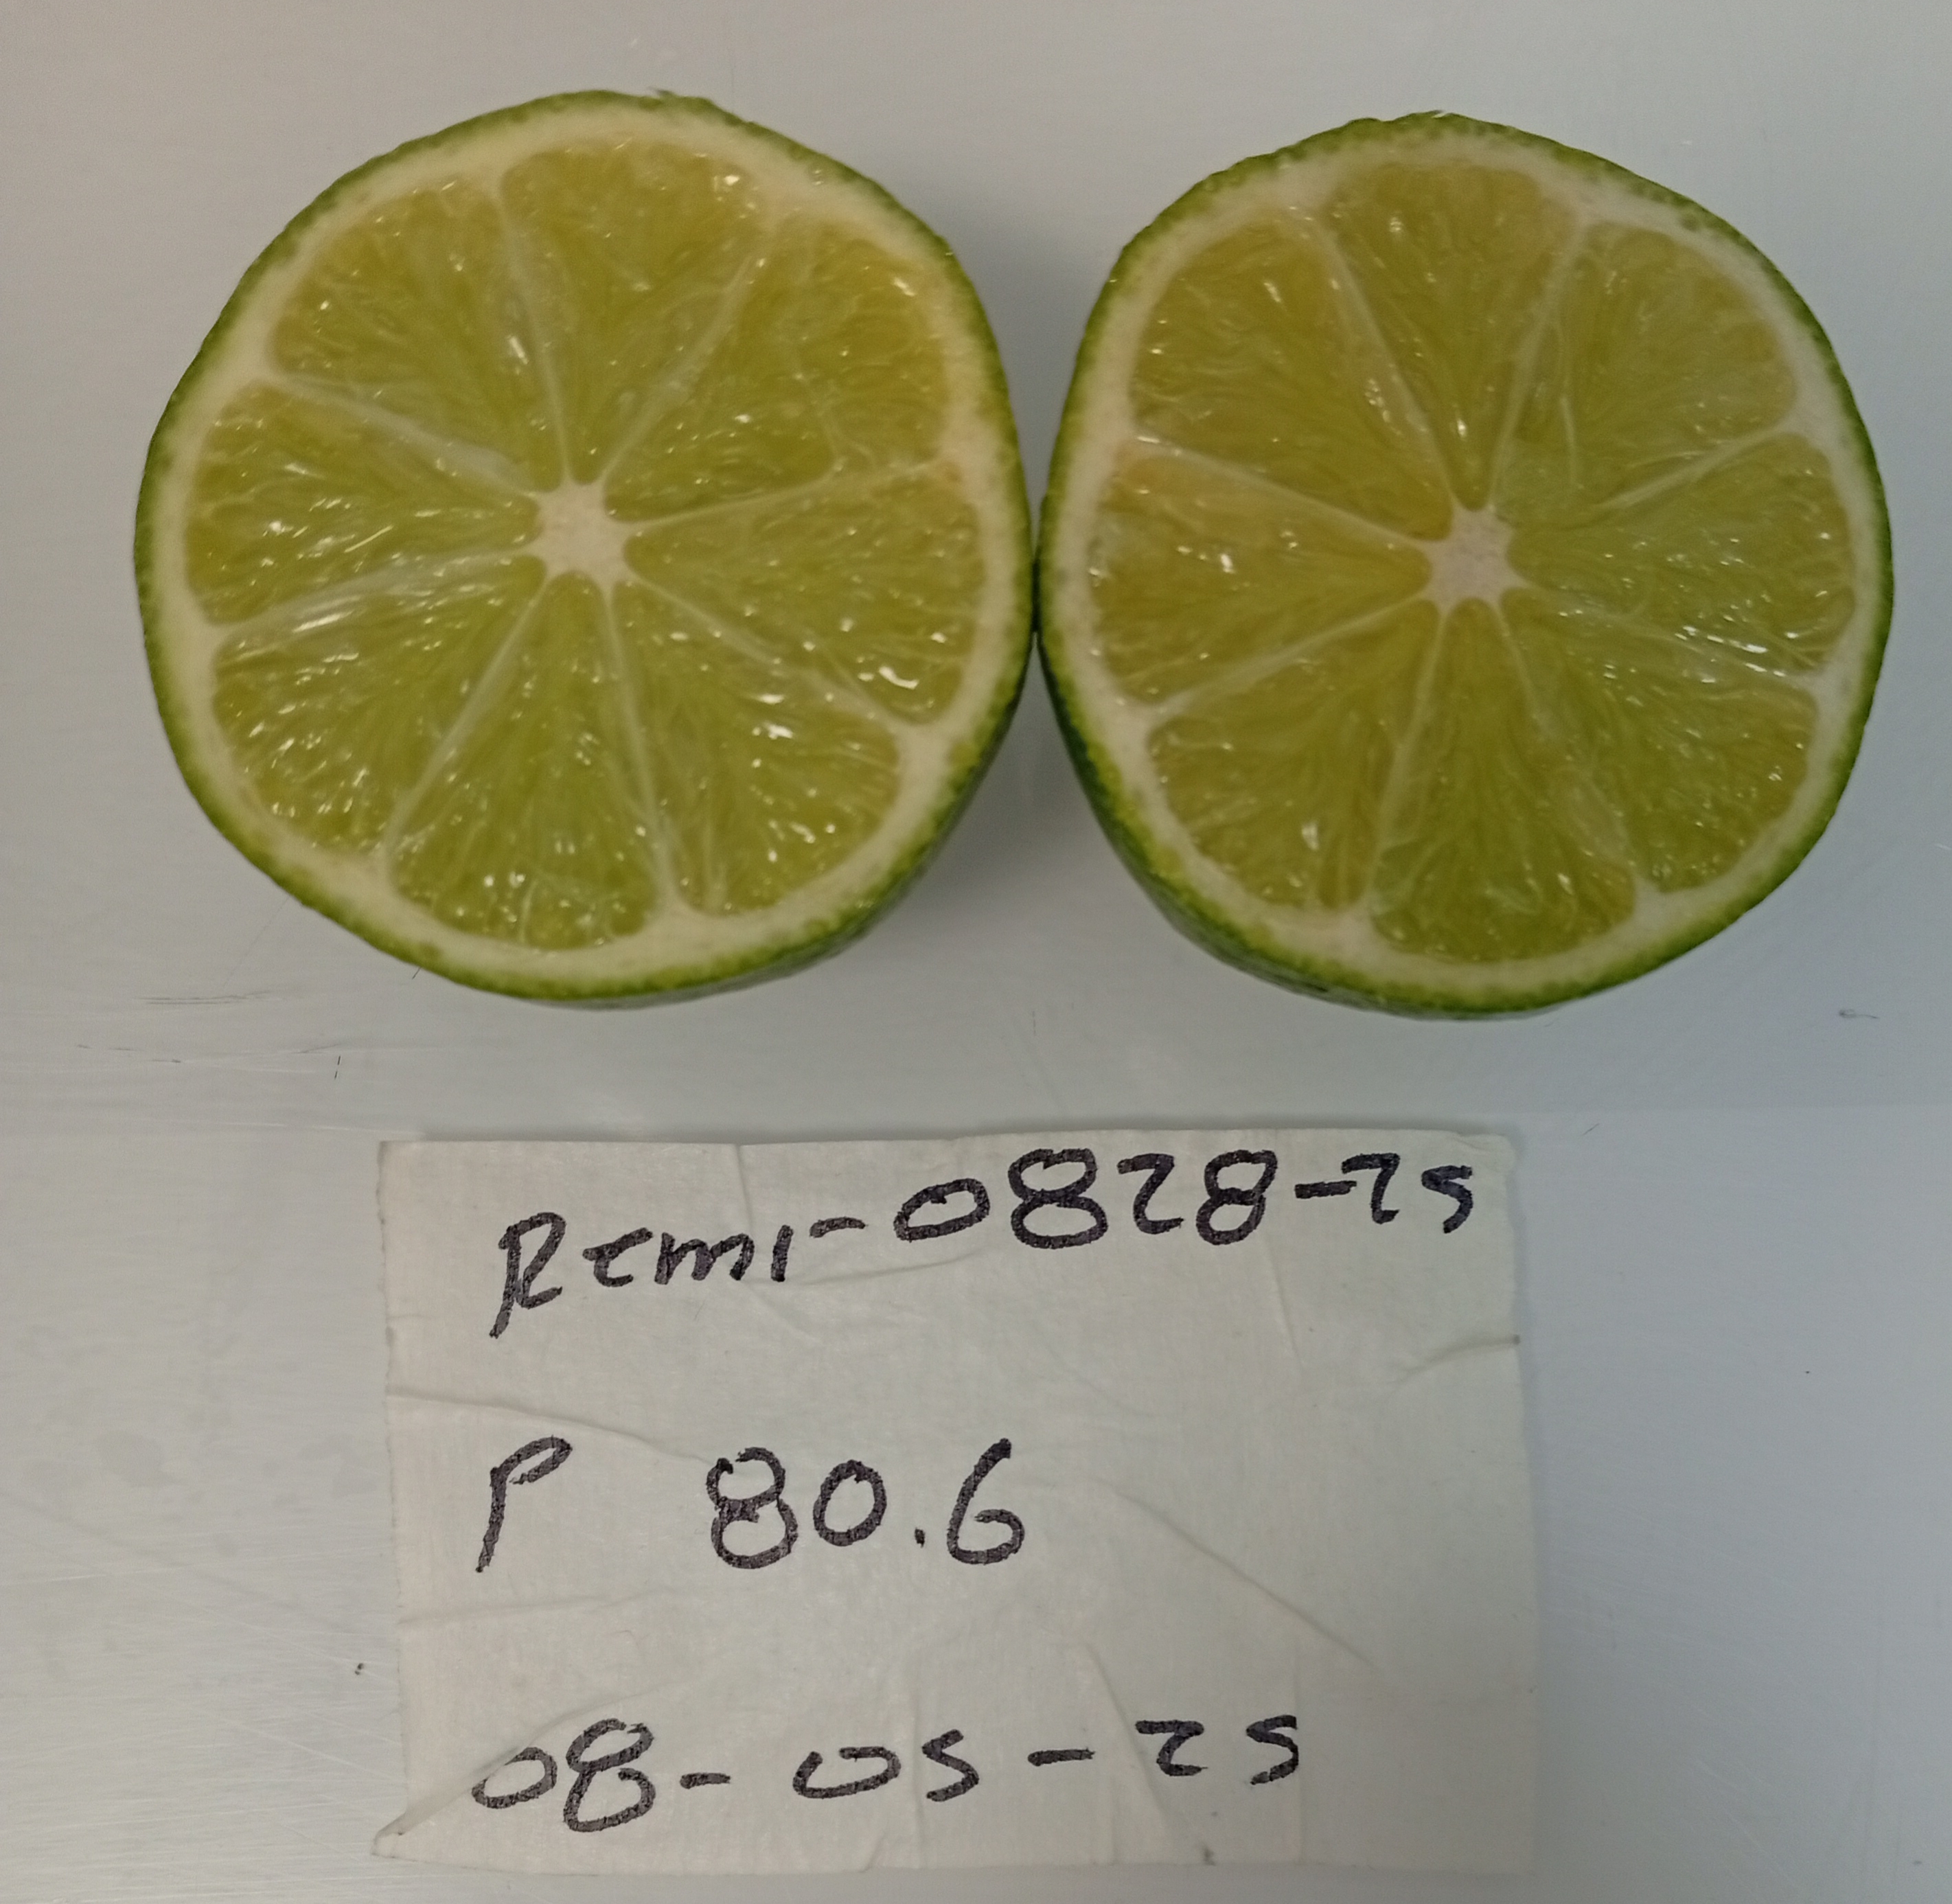 Remi-0828-25
P 80.6
08-05-25